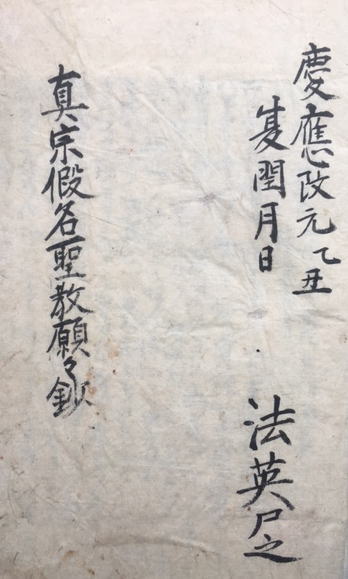 慶應改元乙丑
夏閏月日
法英尸之
真宗假名聖教願々鈔